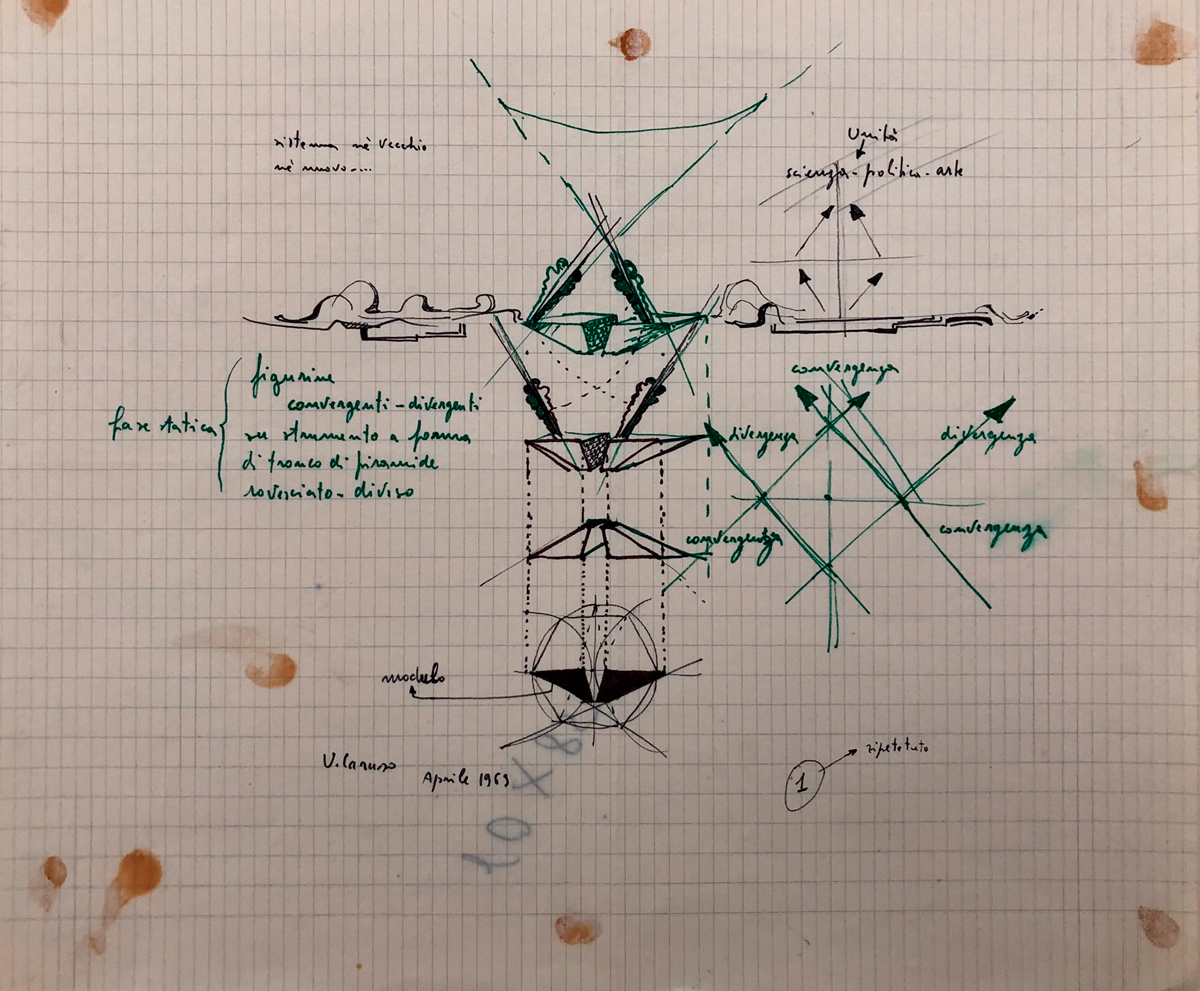 sistema nè vecchio
nè nuovo....
Unità
scienza - politica - arte
fase statica
figurine
convergenti - divergenti
su strumento a forma
di tronco di piramide
rovesciato - diviso
convergenza
divergenza
divergenza
convergenza
convergenza
modulo
V. Caruso
Aprile 1969
1
ripetuto
10 X 8